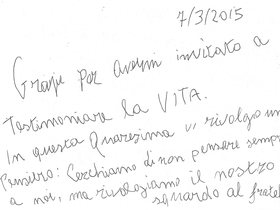 7/3/2015
Grazie per avermi invitato a
Testimoniare la VITA.
In questa Quaresima vi rivolgo un
Pensiero: Cerchiamo di non pensare sempre
a noi, ma rivolgiamo il nostro
sguardo al fratel